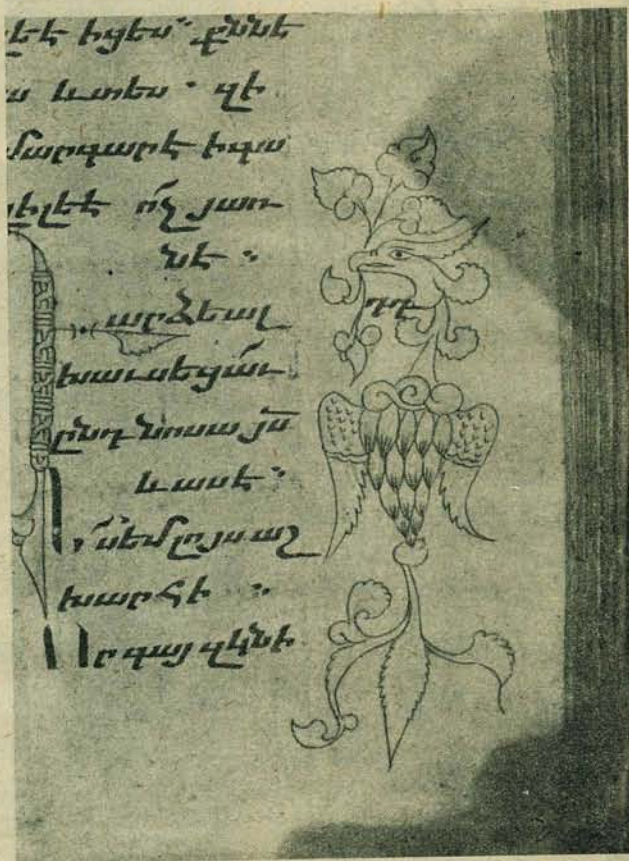 լեէ իցես․ քննե
ա և տես․ զի
մարգարէ ի գա
լիլեէ ոչ յառ
նէ ։
արձեալ
խաւսեցաւ
ընդ նոսա յս
և ասէ ։
ս եմ լոյս աշ
խարհի ։
Որ գայ զկնի